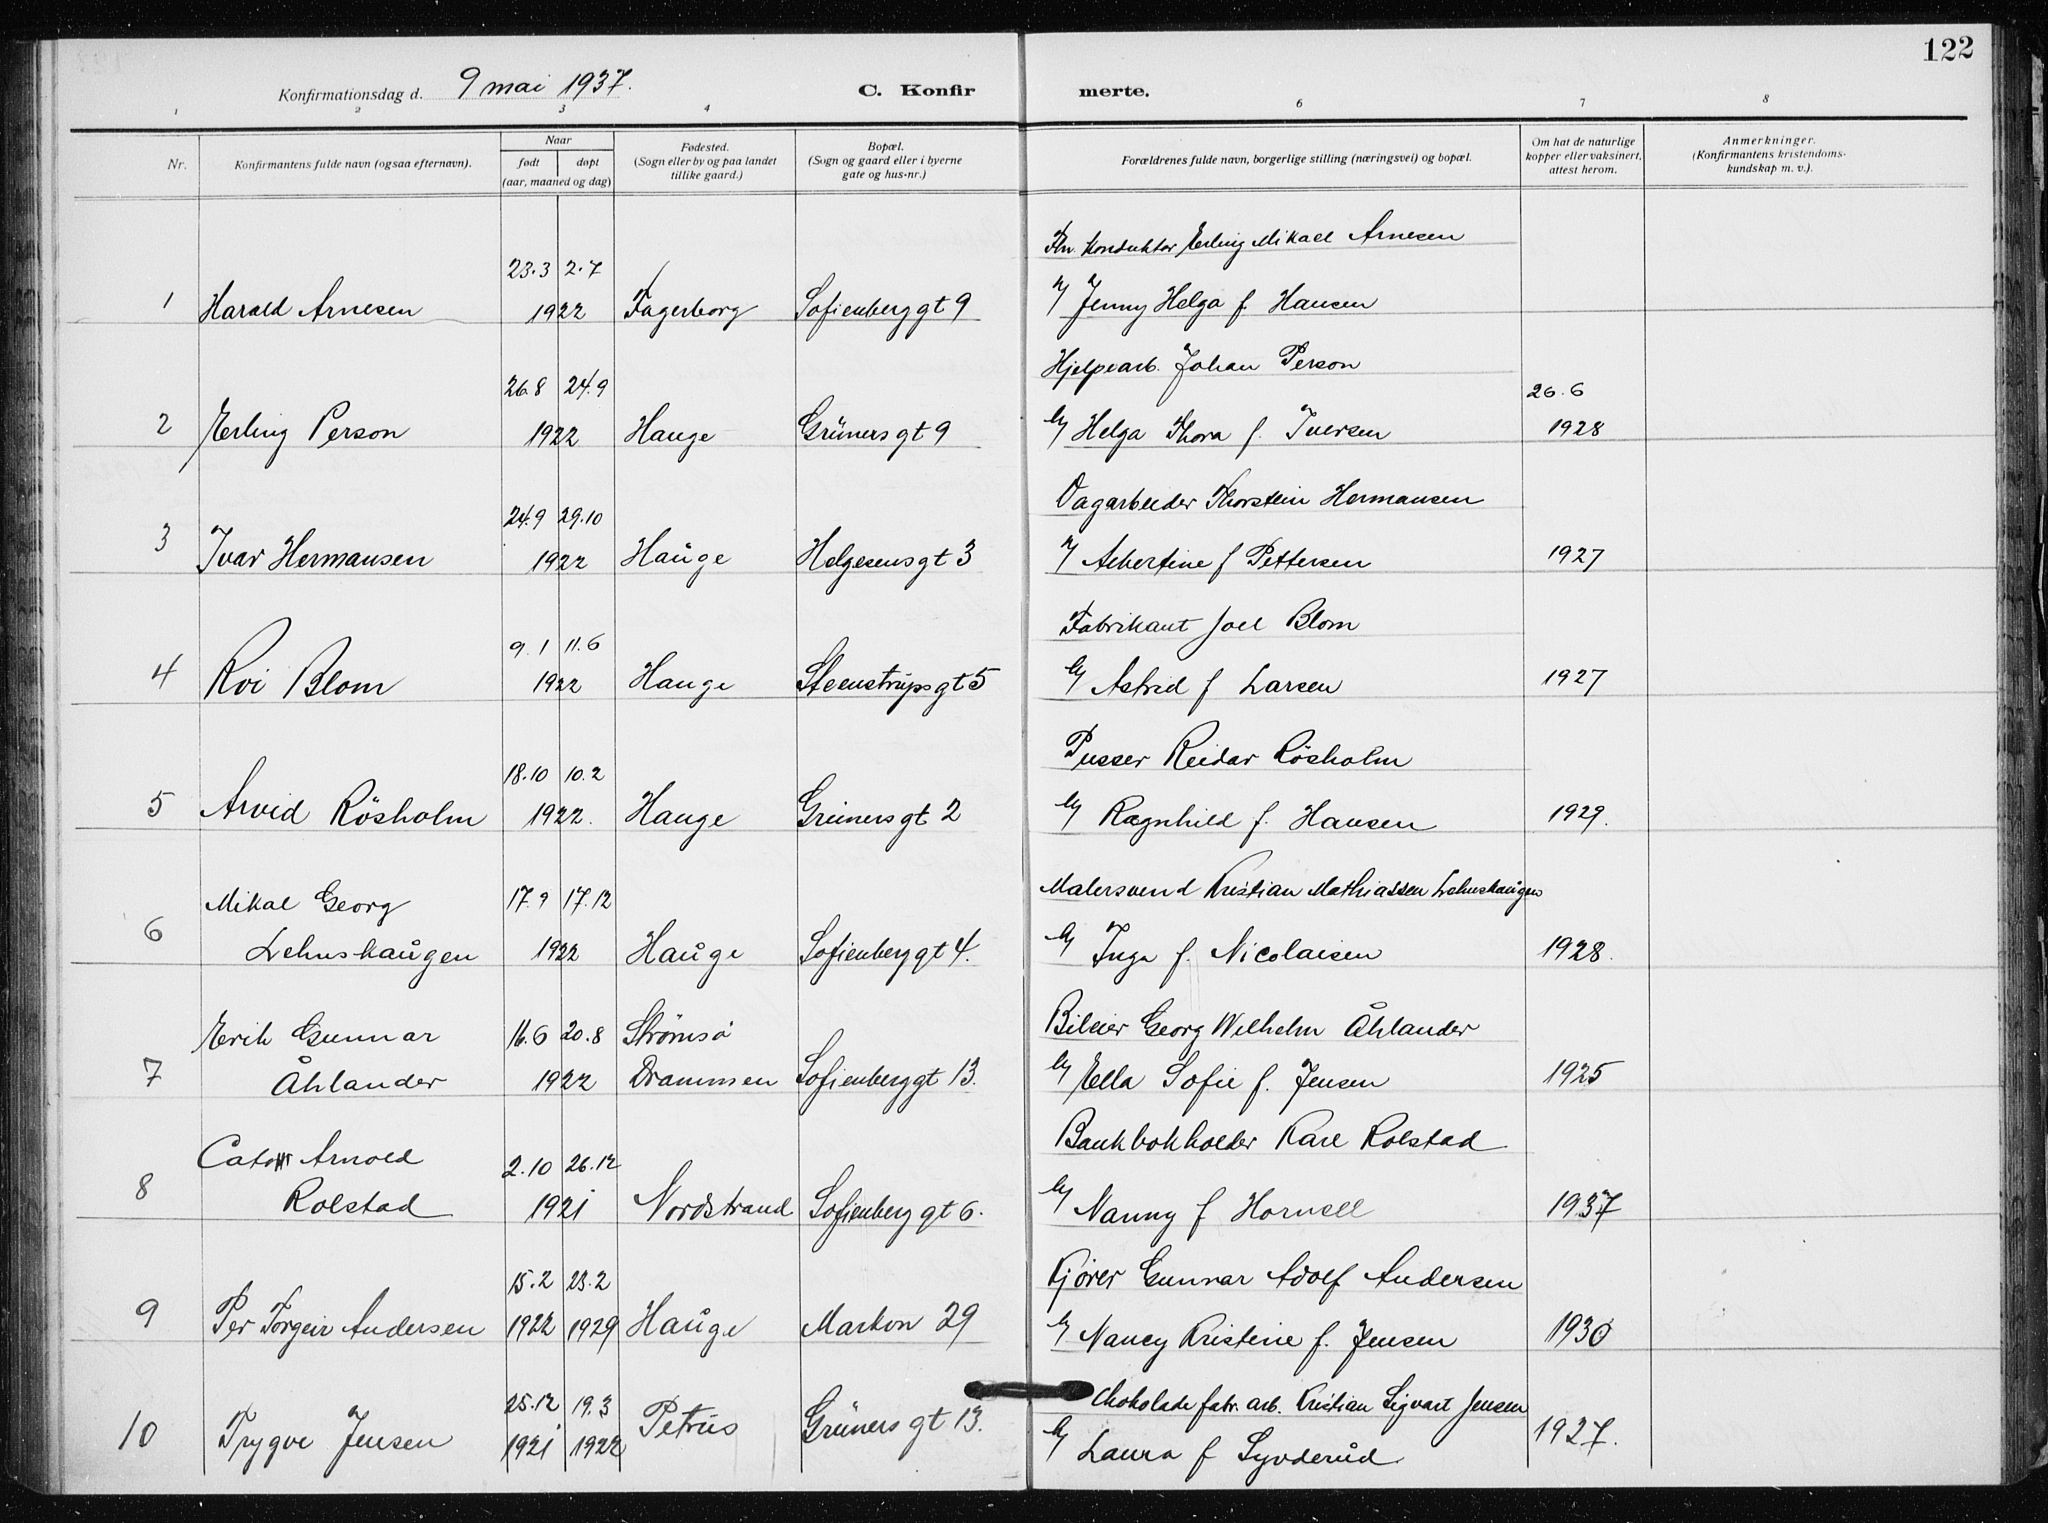 122
Konfirmationsdag d. 9 mai 1937.
C. Konfirmerte.
1 2 3 4 6 7 8
Nr.
Konfirmantens fulde navn (ogsaa efternavn).
Naar
født døpt
(aar, maaned og dag)
Fødested.
(Sogn eller by og paa landet
tillike gaard.)
Bopæl.
(Sogn og gaard eller i byerne
gate og hus-nr.)
Forældrenes fulde navn, borgerlige stilling (næringsvei) og bopæl.
Om hat de naturlige
kopper eller vaksinert,
attest herom.
Anmerkninger.
(Konfirmantens kristendoms-
kundskap m. v.).
Konduktør Erling Mikael Arnesen
23.3 2.7
1 Harald Arnesen 1922 Fagerborg Sofienberggt 9 Jenny Helga f. Hansen
Hjelpearb. Johan Person
26.8 24.9 26.6
2 Erling Person 1922 Hauge Grünersgt 9 Helga Thora f. Iversen 1928
Dagarbeider Thorstein Hermansen
24.9 29.10
3 Ivar Hermansen 1922 Hauge Helgesensgt 3 Albertine f Pettersen 1927
Fabrikant Joel Blom
9.1 11.6
4 Roi Blom 1922 Hauge Steenstrupsgt 5 Astrid f Larsen 1927
Pusser Reidar Rösholm
18.10 10.2
5 Arvid Rösholm 1922. Hauge Grünersgt 2 Ragnhild f. Hansen 1929.
Malersvend Kristian Mathiassen Lehnskaugen
Mikal Georg 17.9 17.12
6 Lehnskaugen 1922 Hauge Sofienberggt 4. Inga f. Nicolaisen 1928.
Bileier Georg Wilhelm Åhlander
Erik Gunnar 16.6 20.8 Strømsø
7 Åhlander 1922 Drammen Sofienberggt 13. Ella Sofie f. Jensen 1925
Bankbokholder Karl Rolstad
Cato Arnold 2.10 26.12
8 Rolstad 1921 Nordstrand Sofienberggt 6. Nanny f Hornell 1937
Kjører Gunnar Adolf Andersen
15.2 23.2
9 Per Torgeir Andersen 1922 1929 Hauge Markvn 29 Nancy Kristine f. Jensen 1930
Chokoladefabr. arb. Kristian Sigvart Jensen
25.12 19.3
10 Trygve Jensen 1921 1922 Petrus Grünersgt 13. Laura f Syvderud 1927.